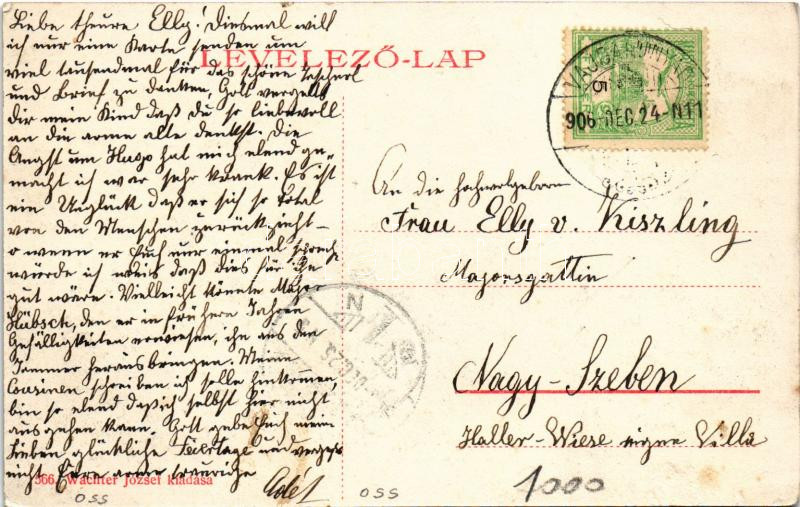 Liebe theure Elly! Diesmal will
ich nur eine Karte senden um
viel tausendmal für das schöne
und Brief zu danken, Gott vergelts
dir mein Kind daß du so liebevoll
an die arme alte denkst. Die
Angst um Hugo hat mich elend ge-
macht ich war sehr krank. Es ist
ein Unglück daß er sich so total
von den Menschen zurückzieht -
o wenn er Euch nur einmal
würde ich weis daß dies für ihn
gut wäre. Vielleicht könnte Major
Hübsch, den er in früheren Jahren
Gefälligkeiten erwiesen, ihn aus den
Jammer herausbringen. Meine
Cousinen schreiben ich solle hinkommen,
bin so elend daß ich selbst hier nicht
ausgehen kann. Gott gebe Euch mein
Lieben glückliche Feiertage und
nicht Eure arme traurige
LEVELEZŐ-LAP
5
906 DEC. 24-N11
An die hochwolgeborn
Frau Elly v. Kiszling
Majorsgattin
Nagy-Szeben
Haller-Wiese eigne Villa
366. Wachter József kiadása
OSS
OSS
1000